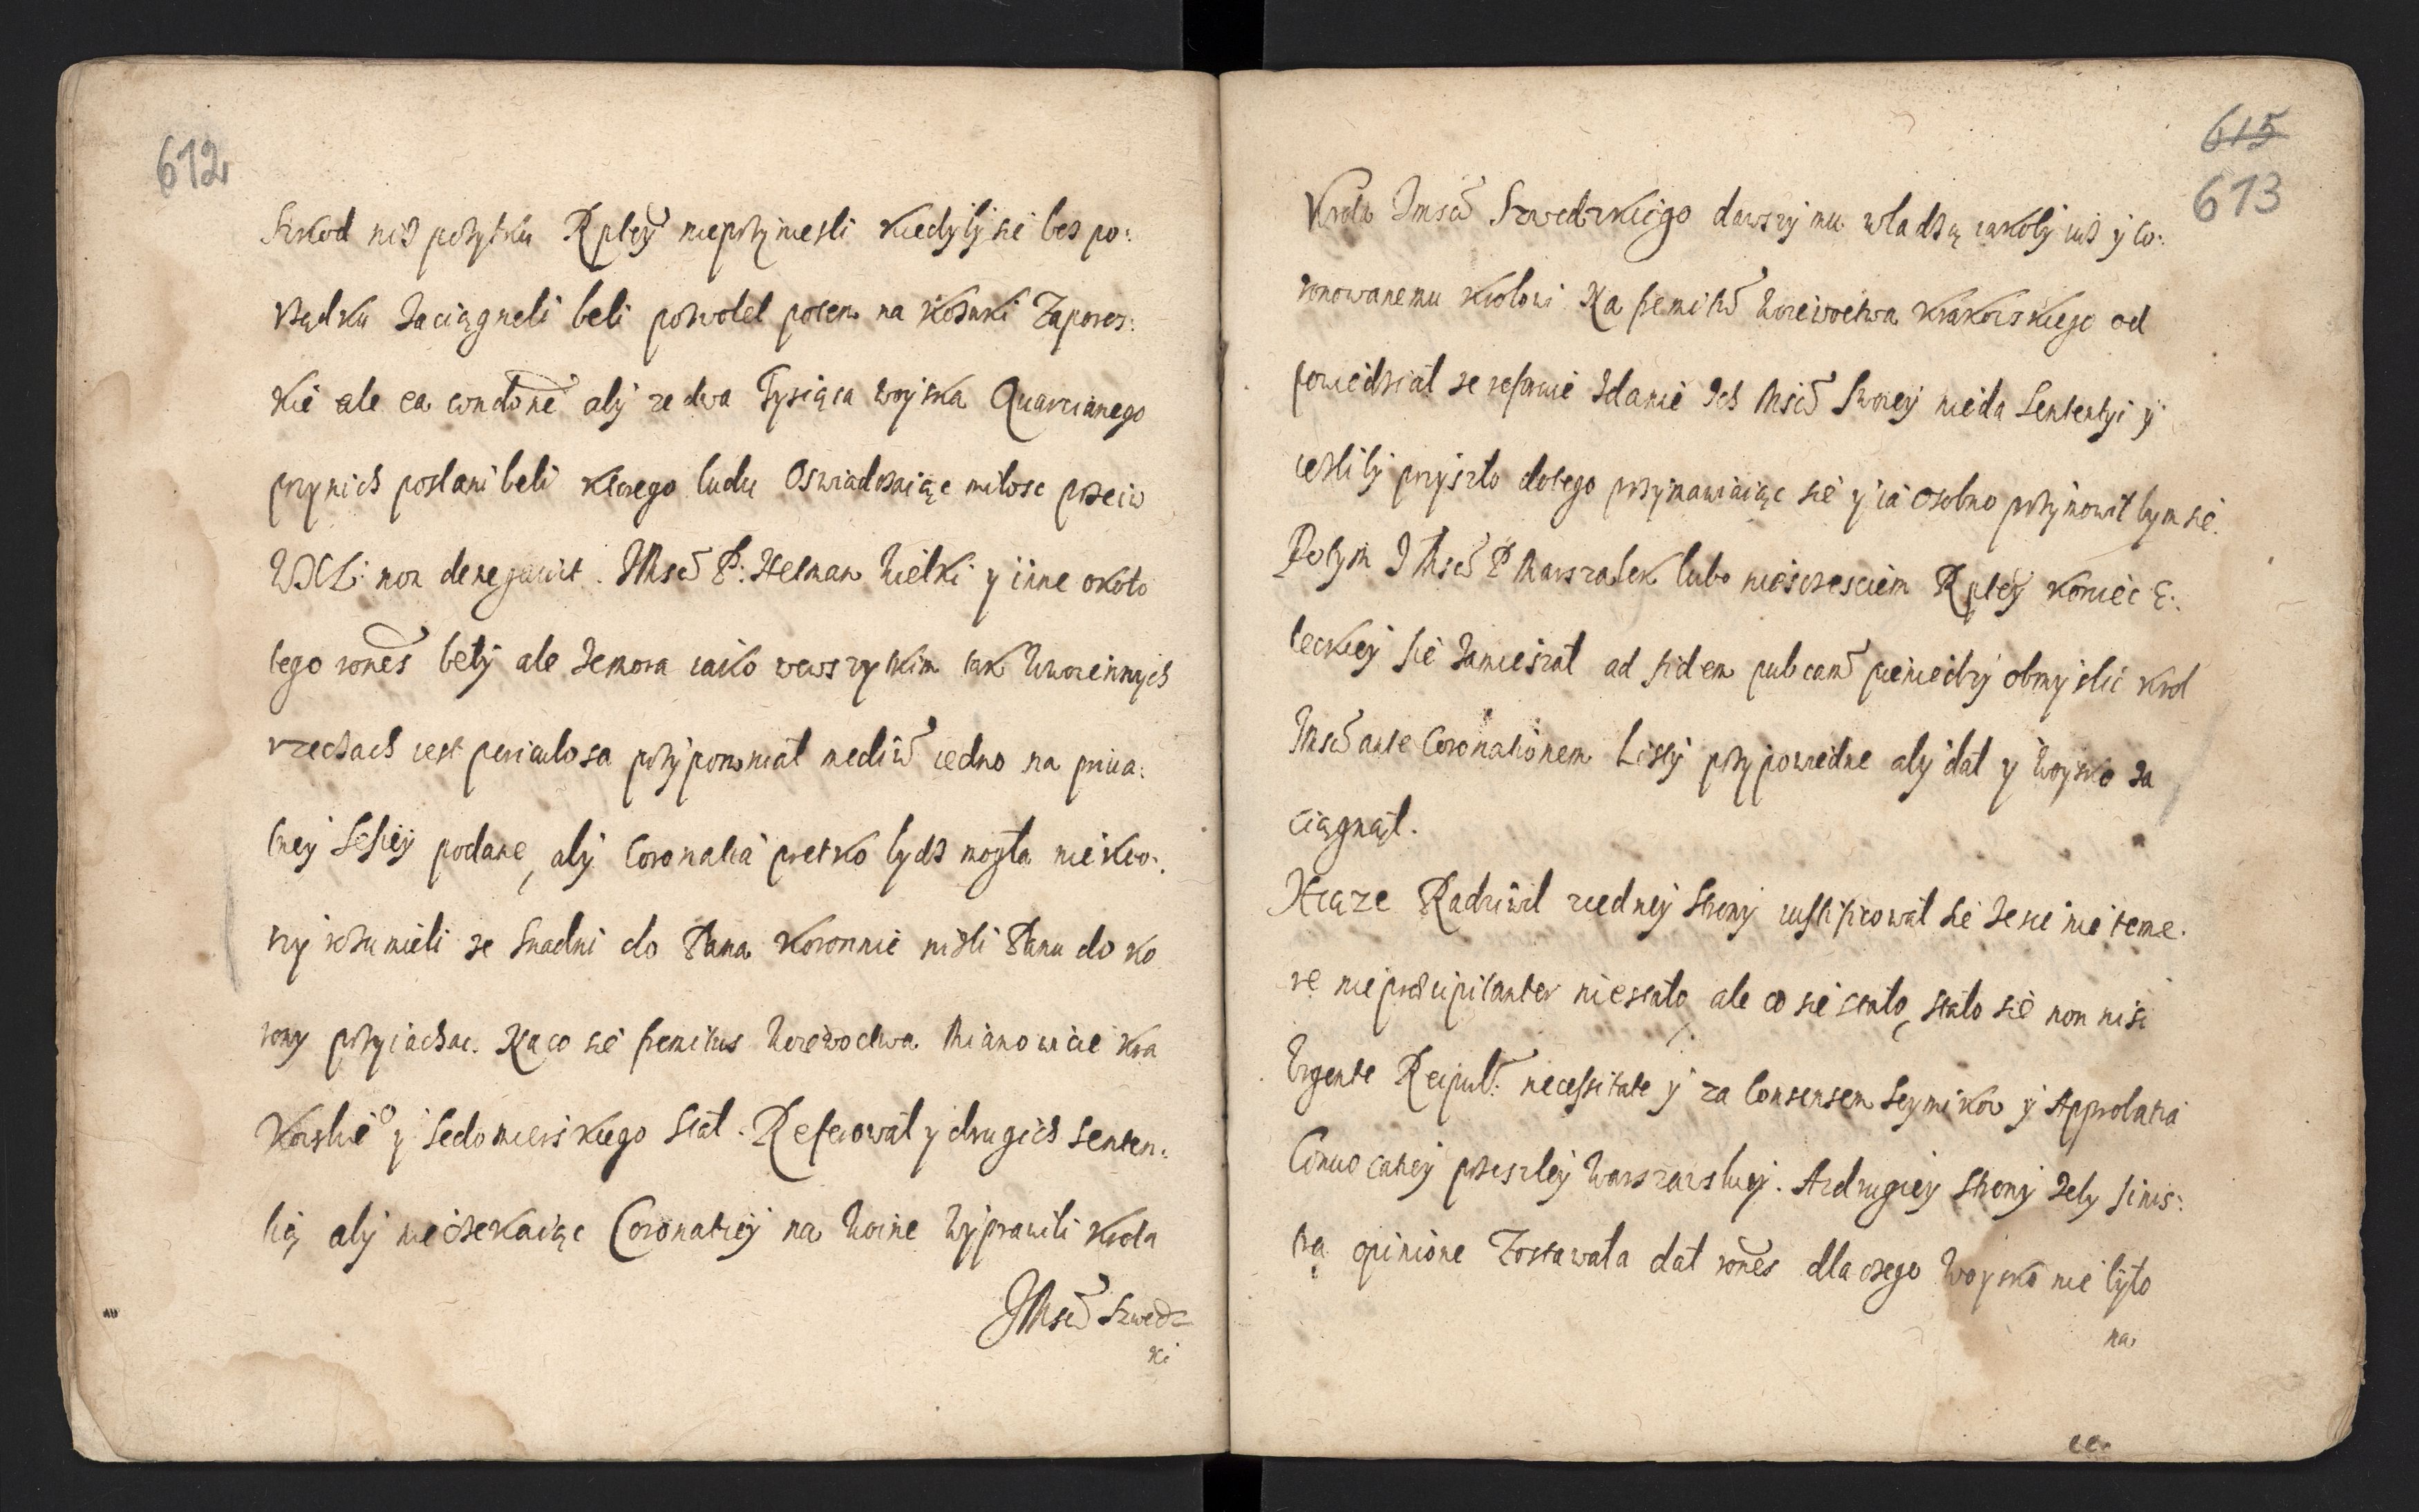 612
Szkod niz pozytku Rptey nieprzyniesli kiedyby sie bes po:
rządku Zaciągneli beli pozwolel potem na Kozaki Zaporos:
kie ale ea condone aby ze dwa Tysiąca woyska Quarcianego
przy nich poslani beli ktorego ludu Oswiadczaiąc milosc przeciw
WXL: non denegavit. JMsci P: Hetman Wielki y inne około
tego rones beły ale Ze mora iako wewszytkim tak Wwoiennych
rzeczach iest periculosa przypomniał mediu iedno na priva:
tney Sessiey podane, aby Coronatia pretko bydz mogła niekto:
rzy rozumieli ze snadni do Pana Koronnie nizli Panu do ko
rony przyiachac. Na co sie penitus Woiewodztwa Mianowicie Kra
kowskie° y Sedomierskiego Stał. Referował y drugich senten:
tią aby nie czekaiąc Coronatiey na Woine Wyprawili krola
JMsci Szwedz
ki
615
613
Krola Jmsci Szwedzkiego dawszy mu władzą iakoby iuz y co:
ronowanemu krolowi Na penitu Woiewoctwa Krakowskiego od
powiedział ze sprawie Zdanie Ich Msciu Swoiey nieda Sententyi y
iezliby przyszło do tego przymawiaiąc sie y ia Osobno przymowił bym sie.
Potym J Msci P Marszalek lubo nieszczesciem Rptey koniec E:
leckiey sie Zamieszał ad fidem pubcam pieniedzy obmyslic krol
JMsci ante Coronationem Listy przypowiedne aby dał y Woysko Za
ciągnął.
Xiąze Radziwil ziedney strony iustificował sie Ze sie nie teme.
re nie praecipitanter niestało, ale co sie stało, stało sie non nisi
Urgente Reipub: necessitate y za Consensem Seymikow y Approbatia
Conuocatiey przeszley Warszawskiey. A zdrugiey strony Zeby sinis:
tra opinione Zostawała dał rones dla czego Woysko nie było
na
ee.